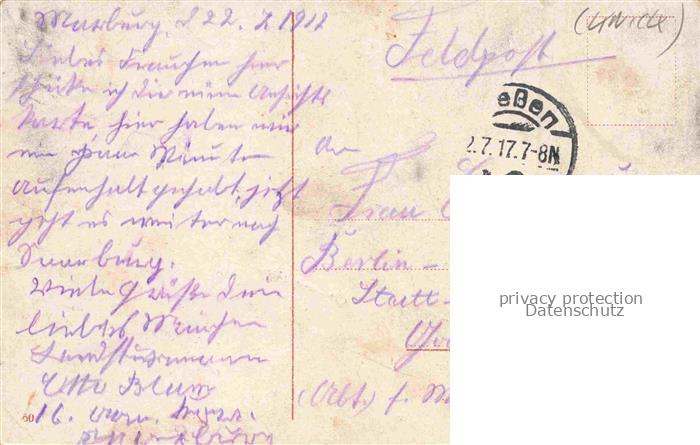 Marburg, d 22. 7. 1917
Liebes Frauchen hier
schicke ich Dir eine Ansichts
karte, hier haben wir
ein paar Minuten
Aufenhalt gehabt, jetzt
geht es weiter nach
Saarburg.
Viele Grüße Dein
liebes Männchen
Landsturmmann
Otto Blum
16.
Feldpost
An
Frau
Berlin –
Statt-
(Abt) f. M
eßen
2.7.17.7-8N
privacy protection
Datenschutz